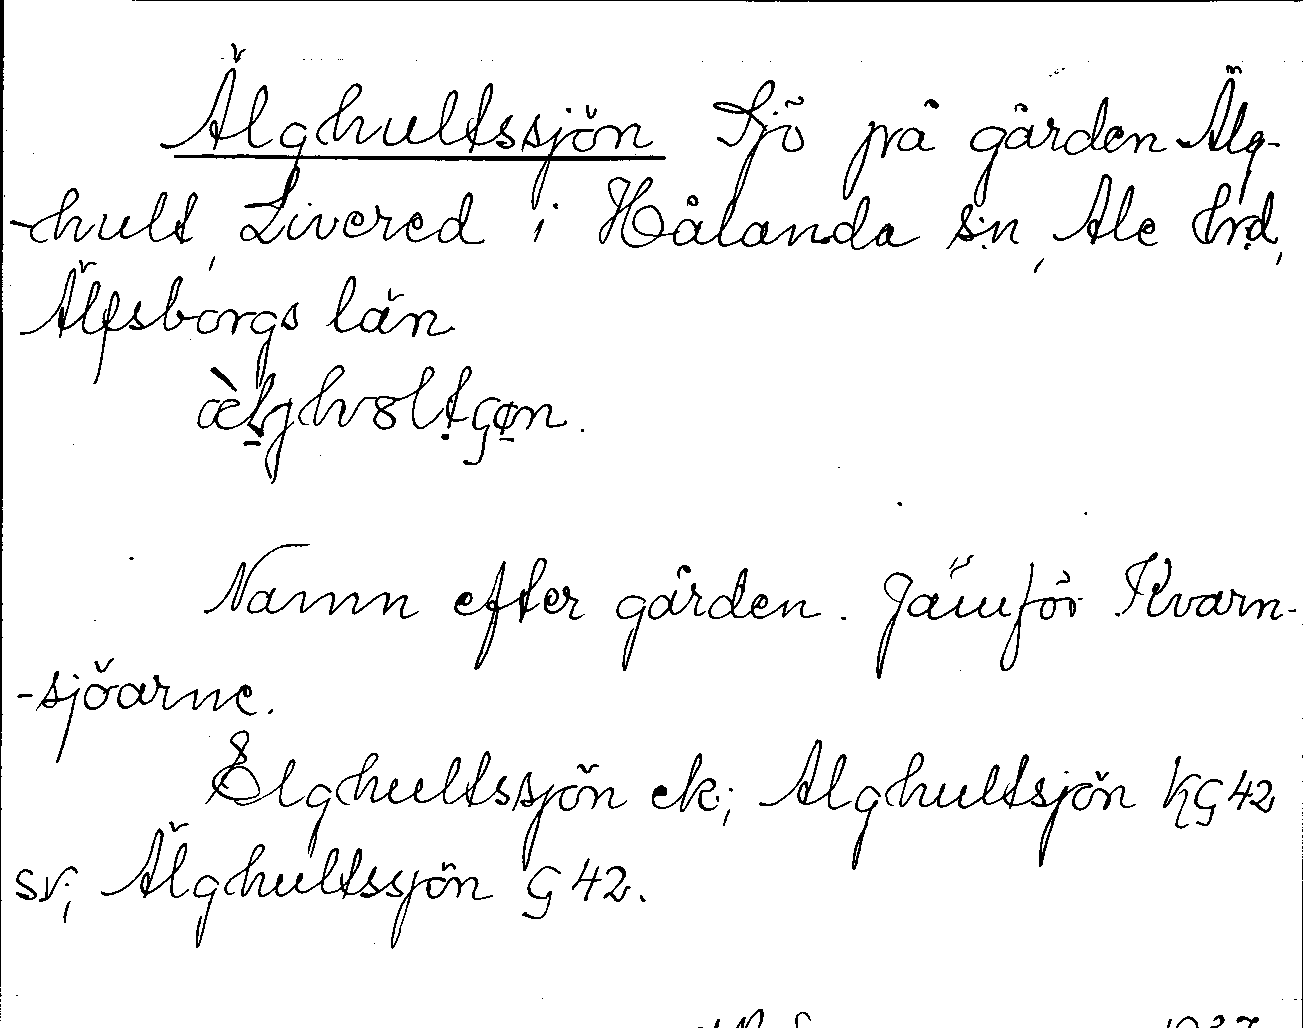 Älghultssjön Sjö på gården Älg-
-hult, Livered i Hålanda sn, Ale hrd,
Älfsborgs län
Namn efter gården. Jämför Kvarn-
-sjöarne.
Elghultssjön ek; Alghultsjön KG 42
sv; Älghultssjön G 42.